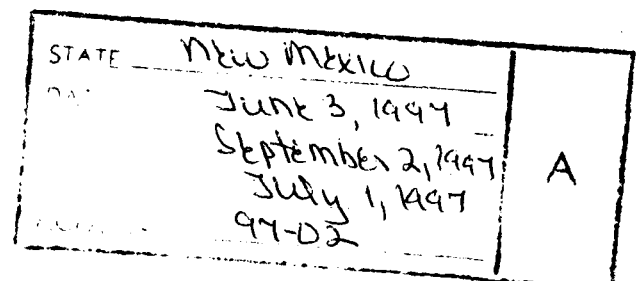 STATE New Mexico
DA June 3, 1997
September 2, 1997
July 1, 1997
97-02
A